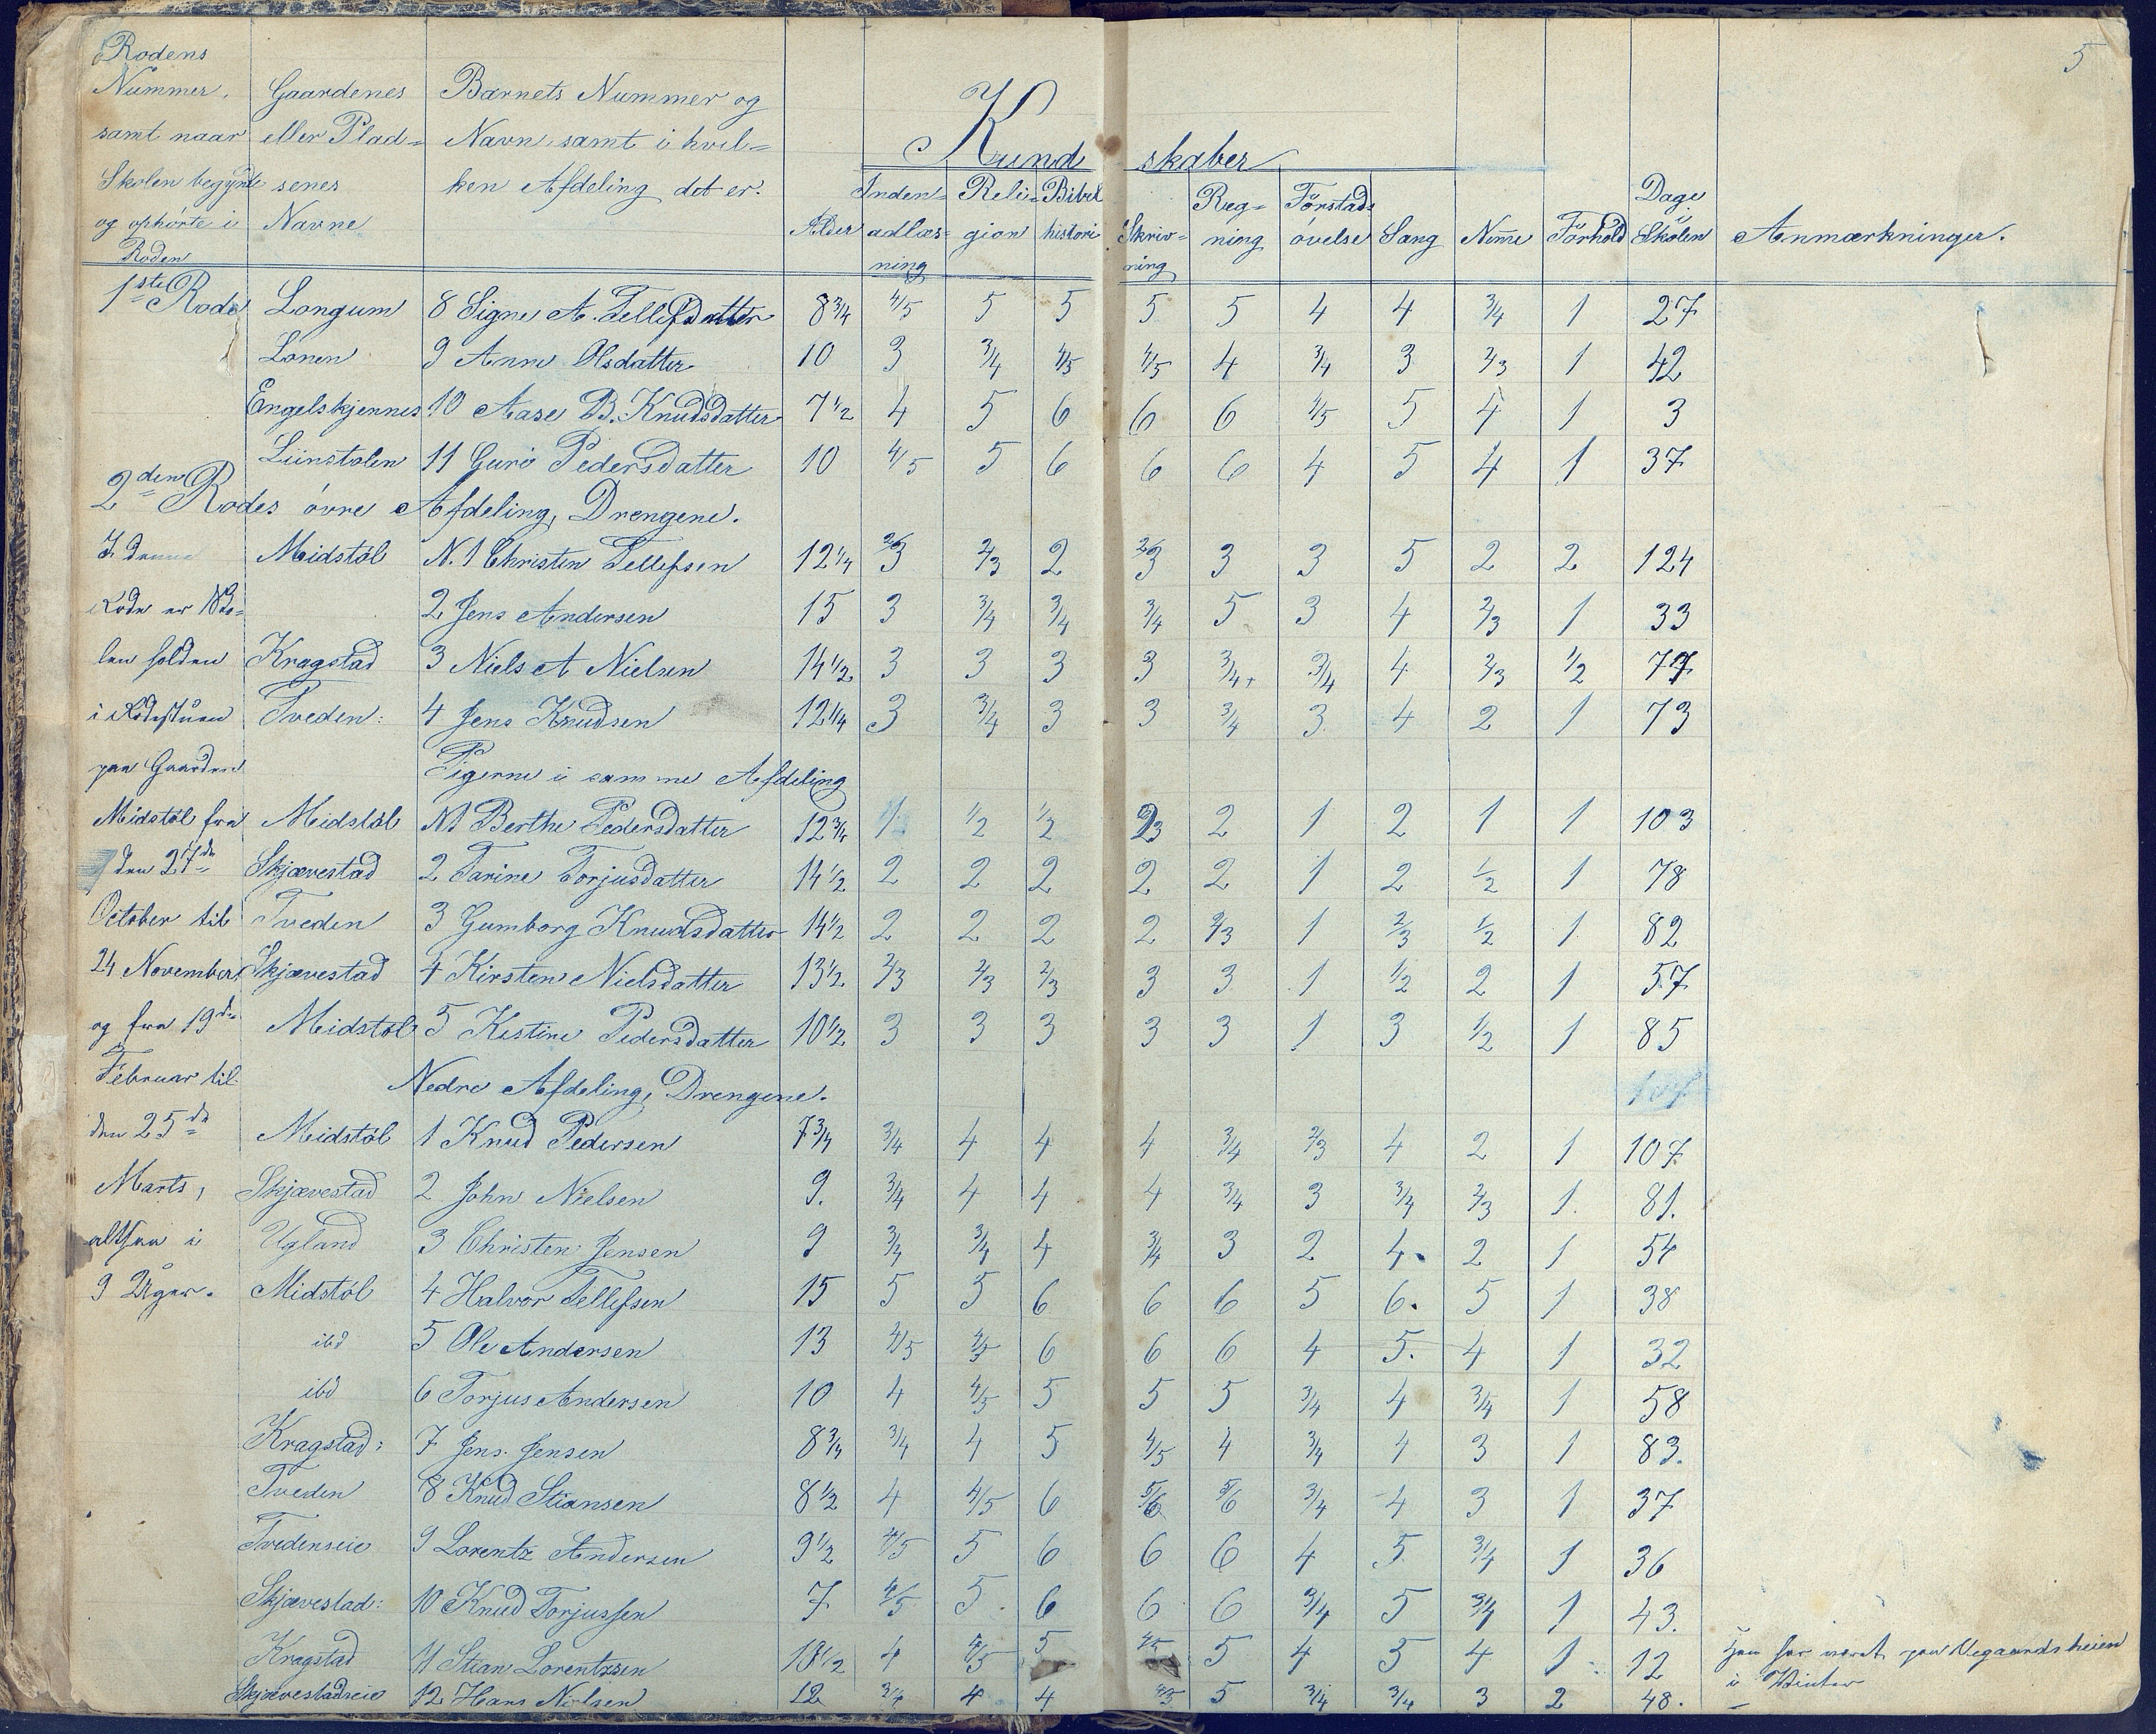 5
Rodens Nummer, samt naar Skolen begyndte og ophörte i Roden | Gaardenes eller Plad= senes Navne | Barnets Nummer og Navn samt i hvil= ken Afdeling det er. | Alder | Kund skaber | Inden= adlæs= ning | Reli= gion | Bibel histori | Skriv= ning | Reg= ning | Forstads övelse | Sang | Neme | Forhold | Dage Skolen | Anmærkninger.
1ste Rode Longum 8 Signe A. Tellefsdatter 8 3/4 4/5 5 5 5 5 4 4 3/4 1 27
Lönen 9 Anne Olsdatter 10 3 3/4 4/5 4/5 4 3/4 3 2/3 1 42
Engelskjennes 10 Aase B. Knudsdatter 7 1/2 4 5 6 6 6 4/5 5 4 1 3
Liinstolen 11 Guro Pedersdatter 10 4/5 5 6 6 6 4 5 4 1 37
2den Rodes övre Afdeling, Drengene.
I denne Midstöl N.1 Christen Tellefsen 12 1/4 2/3 2/3 2 2/3 3 3 5 2 2 124
Rode er Sko= 2 Jens Andersen 15 3 3/4 3/4 3/4 5 3 4 2/3 1 33
len holden Kragstad 3 Niels A Nielsen 14 1/2 3 3 3 3 3/4+ 3/4 4 2/3 1/2 77
i Rodestuen Tveden: 4 Jens Knudsen 12 1/4 3 3/4 3 3 3/4 3 4 2 1 73
paa Gaarden Pigerne i samme Afdeling
Midstöl fra Midstöl N1 Berthe Pedersdatter 12 3/4 1 1/2 1/2 2/3 2 1 2 1 1 103
den 27de Skjævestad 2 Tarine Torjusdatter 14 1/2 2 2 2 2 2 1 2 1/2 1 78
October til Tveden 3 Gumborg Knudsdatter 14 1/2 2 2 2 2 2/3 1 2/3 1/2 1 82
24 November Skjævestad 4 Kirsten Nielsdatter 13 1/2 2/3 2/3 2/3 3 3 1 1/2 2 1 57
og fra 19de Midstöl 5 Kistine Pedersdatter 10 1/2 3 3 3 3 3 1 3 1/2 1 85
Februar til Nedre Afdeling, Drengene.
den 25de Midstöl 1 Knud Pedersen 7 3/4 3/4 4 4 4 3/4 2/3 4 2 1 107
Marts, Skjævestad 2 John Nielsen 9. 3/4 4 4 4 3/4 3 3/4 2/3 1. 81.
altsaa i Ugland 3 Christen Jensen 9 3/4 3/4 4 3/4 3 2 4. 2 1 54
9 Uger. Midstöl 4 Halvor Tellefsen 15 5 5 6 6 6 5 6. 5 1 38
ibd 5 Ole Andersen 13 4/5 4/5 6 6 6 4 5. 4 1 32
ibd 6 Torjus Andersen 10 4 4/5 5 5 5 3/4 4 3/4 1 58
Kragstad: 7 Jens Jensen 8 3/4 3/4 4 5 4/5 4 3/4 4 3 1 83.
Tveden 8 Knud Stiansen 8 1/2 4 4/5 6 5/6 5/6 3/4 4 3 1 37
Tvedenseie 9 Lorentz Andersen 9 1/2 4/5 5 6 6 6 4 5 3/4 1 36
Skjævestad: 10 Knud Torjussen 7 4/5 5 6 6 6 3/4 5 3/4 1 43.
Kragstad 11 Stian Lorentzsen 10 1/2 4 4/5 5 4/5 5 4 5 4 1 12 Han har været paa Vegaardsheien i Vinter
Skjævestadseie 12 Hans Nielsen 12 3/4 4 4 4/5 5 3/4 3/4 3 2 48.